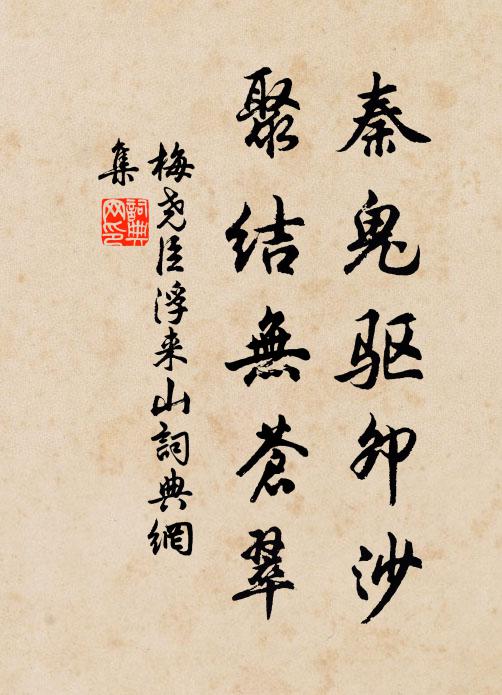 秦鬼驱卯沙
聚结無蒼翠
梅尧臣浮来山詞典網
集
詞典
网印